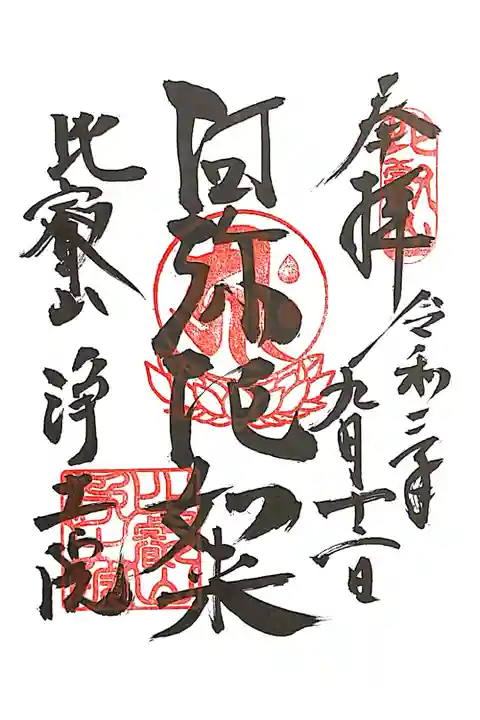 奉拝
比叡山
令和二年
九月十二日
阿弥陀如来
比叡山 浄土院